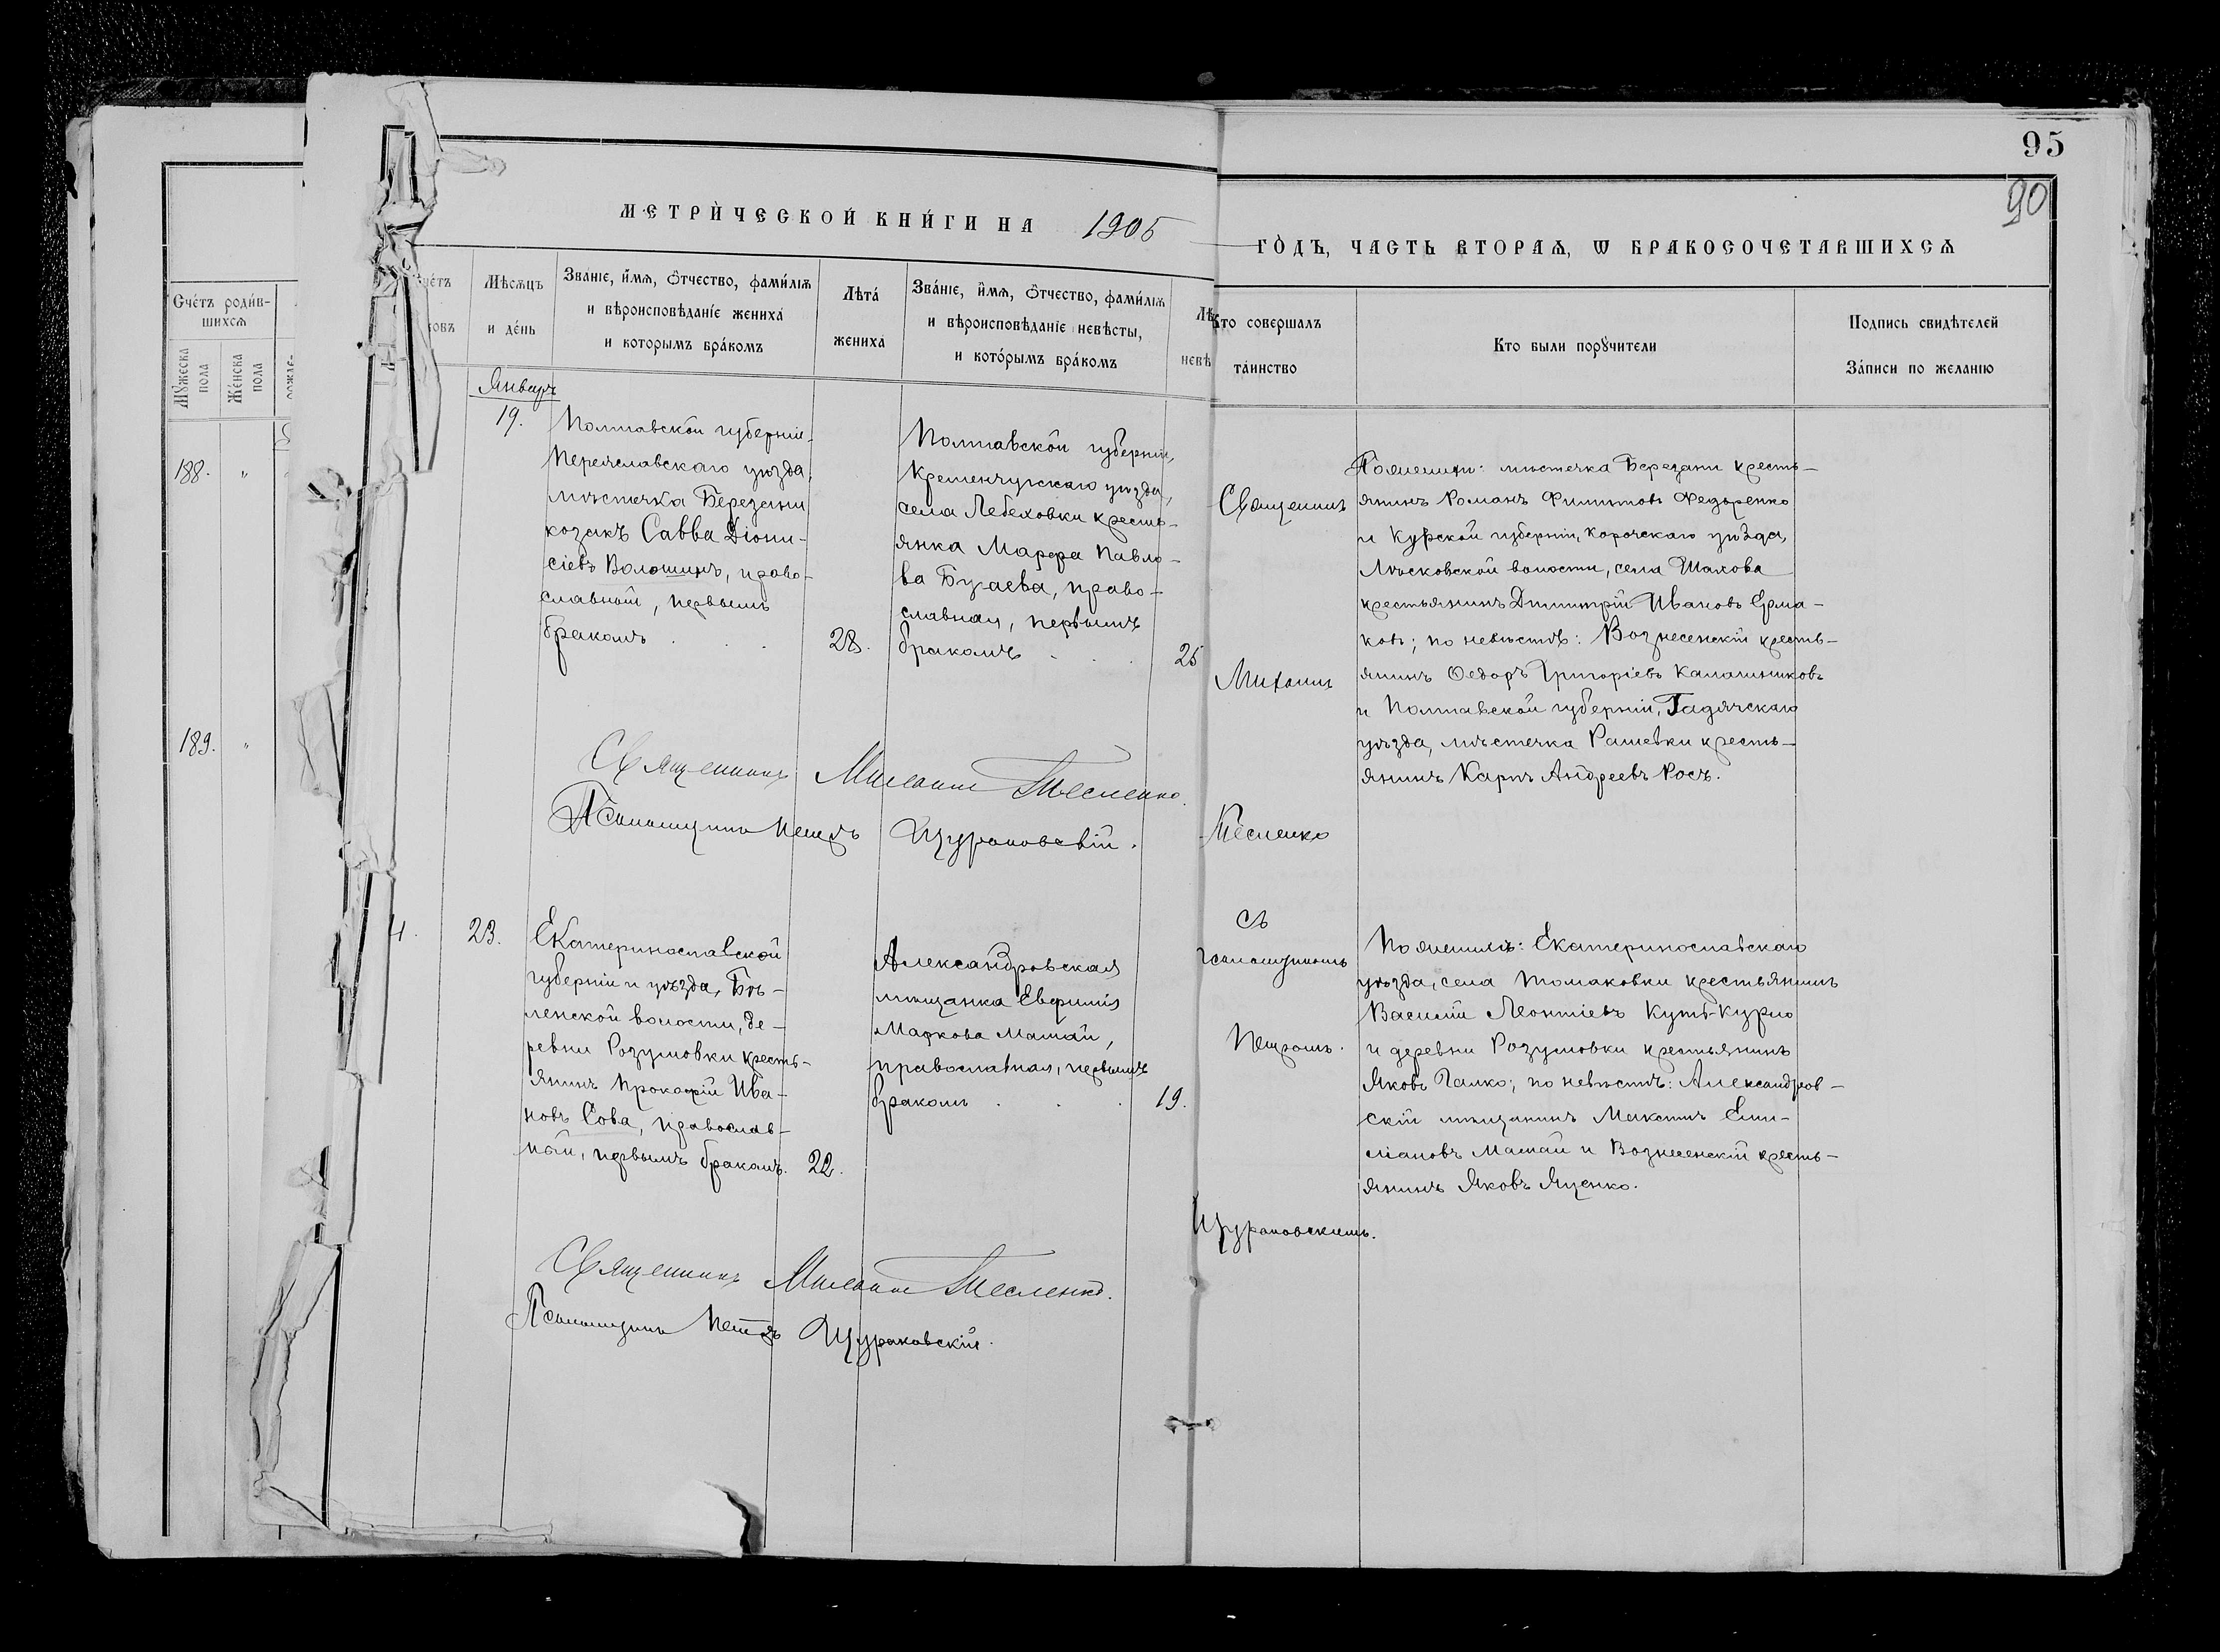 95
90
МЕТРИ́ЧЕСКОЙ КНИ́ГИ НА 1905
ГО́ДЪ, ЧАСТЬ ВТОРАѦ, Ѡ БРАКОСОЧЕТАВШИХСѦ
Сче́тъ роди́в-
шихсѧ
Мꙋжеска пола
Же́нска пола
Мѣсѧцъ
и де́нь
Зва́нїе, и҆́мѧ, ѻ҆́тчество, фами́лїѧ
и вѣроисповѣда́нїе жениха̀
и которымъ бра́комъ
Лѣта̀
жениха̀
Зва́нїе, и҆́мѧ, ѻ҆́тчество, фами́лїѧ
и вѣроисповѣда́нїе невѣ́сты,
и кото́рымъ бра́комъ
Кто совершалъ
та́инство
Кто были порꙋ́чители
Подпись свидѣтелей
За́писи по желанїю
188. "
189. "
Январь
19.
Полтавской губерніи
Переяславскаго уѣзда,
мѣстечка Березани
козакъ Савва Діони-
сіевъ Волошинъ, право-
славный, первымъ
бракомъ . . .
28.
Полтавской губерніи,
Кременчугскаго уѣзда,
села Лебеховки кресть-
янка Марѳа Павло-
ва Бугаева, право-
славная, первымъ
бракомъ . . .
25
Священникъ
Михаилъ
Тесленко
По женихѣ: мѣстечка Березани кресть-
янинъ Романъ Филиповъ Федоренко
и Курской губерніи, Корочскаго уѣзда,
села Шахова
крестьянинъ Дмитрій Ивановъ Ерма-
ковъ; по невѣстѣ: Вознесенскій кресть-
янинъ Ѳедоръ Григоріевъ Калашниковъ
и Полтавской губерніи, Гадячскаго
уѣзда, мѣстечка Рашевки кресть-
янинъ Карпъ Андреевъ Росъ.
Священникъ Михаилъ Тесленко.
Псаломщикъ Петръ Щурановскій.
4.
23.
Екатеринославской
губерніи и уѣзда, Бѣ-
ленской волости, де-
ревни Розумовки кресть-
янинъ Прокофій Ива-
новъ Сова, православ-
ный, первымъ бракомъ. 22.
Александровская
мѣщанка Евфимія
Маркова Мамай,
православная, первымъ
бракомъ . . . 19.
съ
псаломщикомъ
Петромъ
Щурановскимъ.
По женихѣ: Екатеринославскаго
уѣзда, села Томаковки крестьянинъ
Василій Леонтіевъ
и деревни Розумовки крестьянинъ
Яковъ Галко; по невѣстѣ: Александров-
скій мѣщанинъ Максимъ Еми-
ліановъ Мамай и Вознесенскій кресть-
янинъ Яковъ Яценко.
Священникъ Михаилъ Тесленко.
Псаломщикъ Петръ Щурановскій.